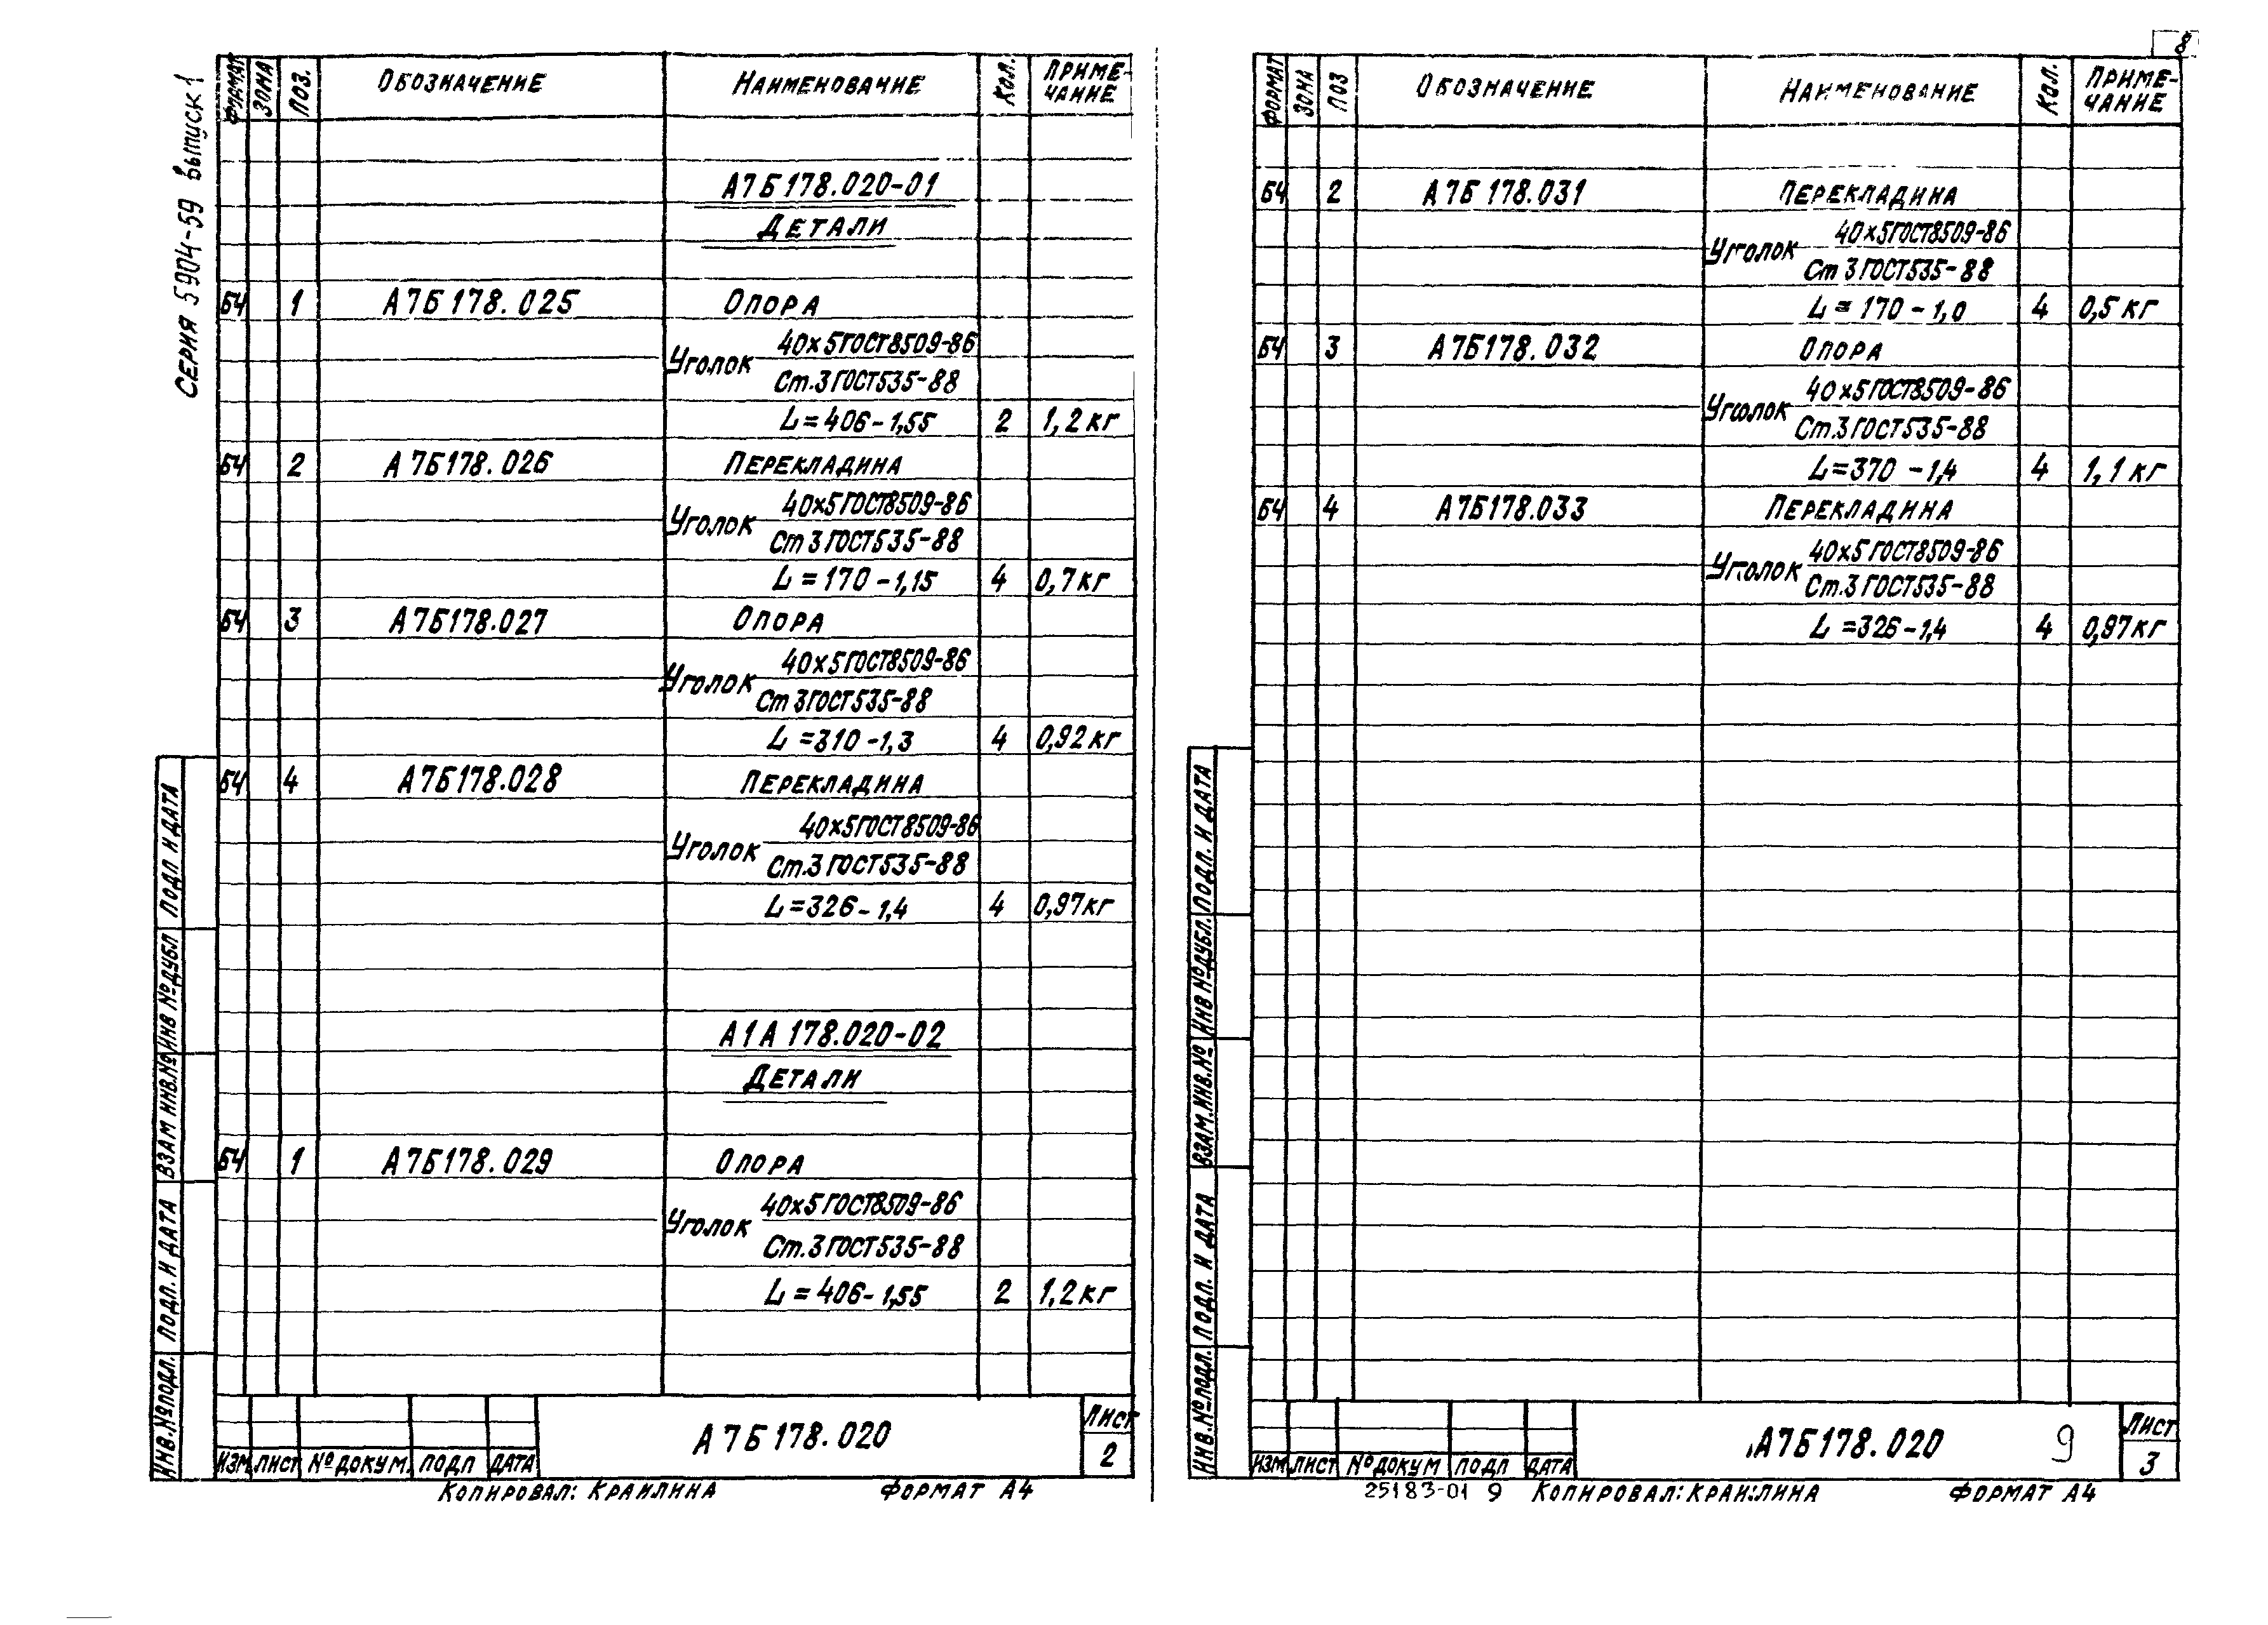 Серия 5904-59 выпуск 1
ФОРМАТ ЗОНА ПОЗ. ОБОЗНАЧЕНИЕ НАИМЕНОВАНИЕ КОЛ. ПРИМЕ-
ЧАНИЕ
А7Б178.020-01
ДЕТАЛИ
БЧ 1 А7Б178.025 ОПОРА
40×5ГОСТ8509-86
Уголок
Ст.3ГОСТ535-88
L=406-1,55 2 1,2кг
БЧ 2 А7Б178.026 ПЕРЕКЛАДИНА
40×5ГОСТ8509-86
Уголок
Ст3ГОСТ535-88
L=170-1,15 4 0,7кг
БЧ 3 А7Б178.027 ОПОРА
40×5ГОСТ8509-86
Уголок
Ст3ГОСТ535-88
L=310-1,3 4 0,92кг
БЧ 4 А7Б178.028 ПЕРЕКЛАДИНА
40×5ГОСТ8509-86
Уголок
Ст.3ГОСТ535-88
L=326-1,4 4 0,97кг
А1А178.020-02
ДЕТАЛИ
БЧ 1 А7Б178.029 ОПОРА
40×5ГОСТ8509-86
Уголок
Ст.3ГОСТ535-88
L=406-1,55 2 1,2кг
ПОДП И ДАТА
ИНВ №ДУБЛ
ВЗАМ ИНВ.№
ПОДП. И ДАТА
ИНВ.№ПОДЛ.
ИЗМ ЛИСТ №ДОКУМ. ПОДП ДАТА
А7Б178.020
ЛИСТ
2
КОПИРОВАЛ: КРАИЛИНА ФОРМАТ А4
8
ФОРМАТ ЗОНА ПОЗ ОБОЗНАЧЕНИЕ НАИМЕНОВАНИЕ КОЛ. ПРИМЕ-
ЧАНИЕ
БЧ 2 А7Б178.031 ПЕРЕКЛАДИНА
40×5ГОСТ8509-86
Уголок
Ст3ГОСТ535-88
L=170-1,0 4 0,5кг
БЧ 3 А7Б178.032 ОПОРА
40×5ГОСТ8509-86
Уголок
Ст.3ГОСТ535-88
L=370-1,4 4 1,1кг
БЧ 4 А7Б178.033 ПЕРЕКЛАДИНА
40×5ГОСТ8509-86
Уголок
Ст.3ГОСТ535-88
L=326-1,4 4 0,97кг
ПОДП. И ДАТА
ИНВ №ДУБЛ.
ВЗАМ.ИНВ.№
ПОДП. И ДАТА
ИНВ.№ПОДЛ.
ИЗМ ЛИСТ №ДОКУМ ПОДП ДАТА
А7Б178.020 9
ЛИСТ
3
25183-01 9 КОПИРОВАЛ: КРАИЛИНА ФОРМАТ А4